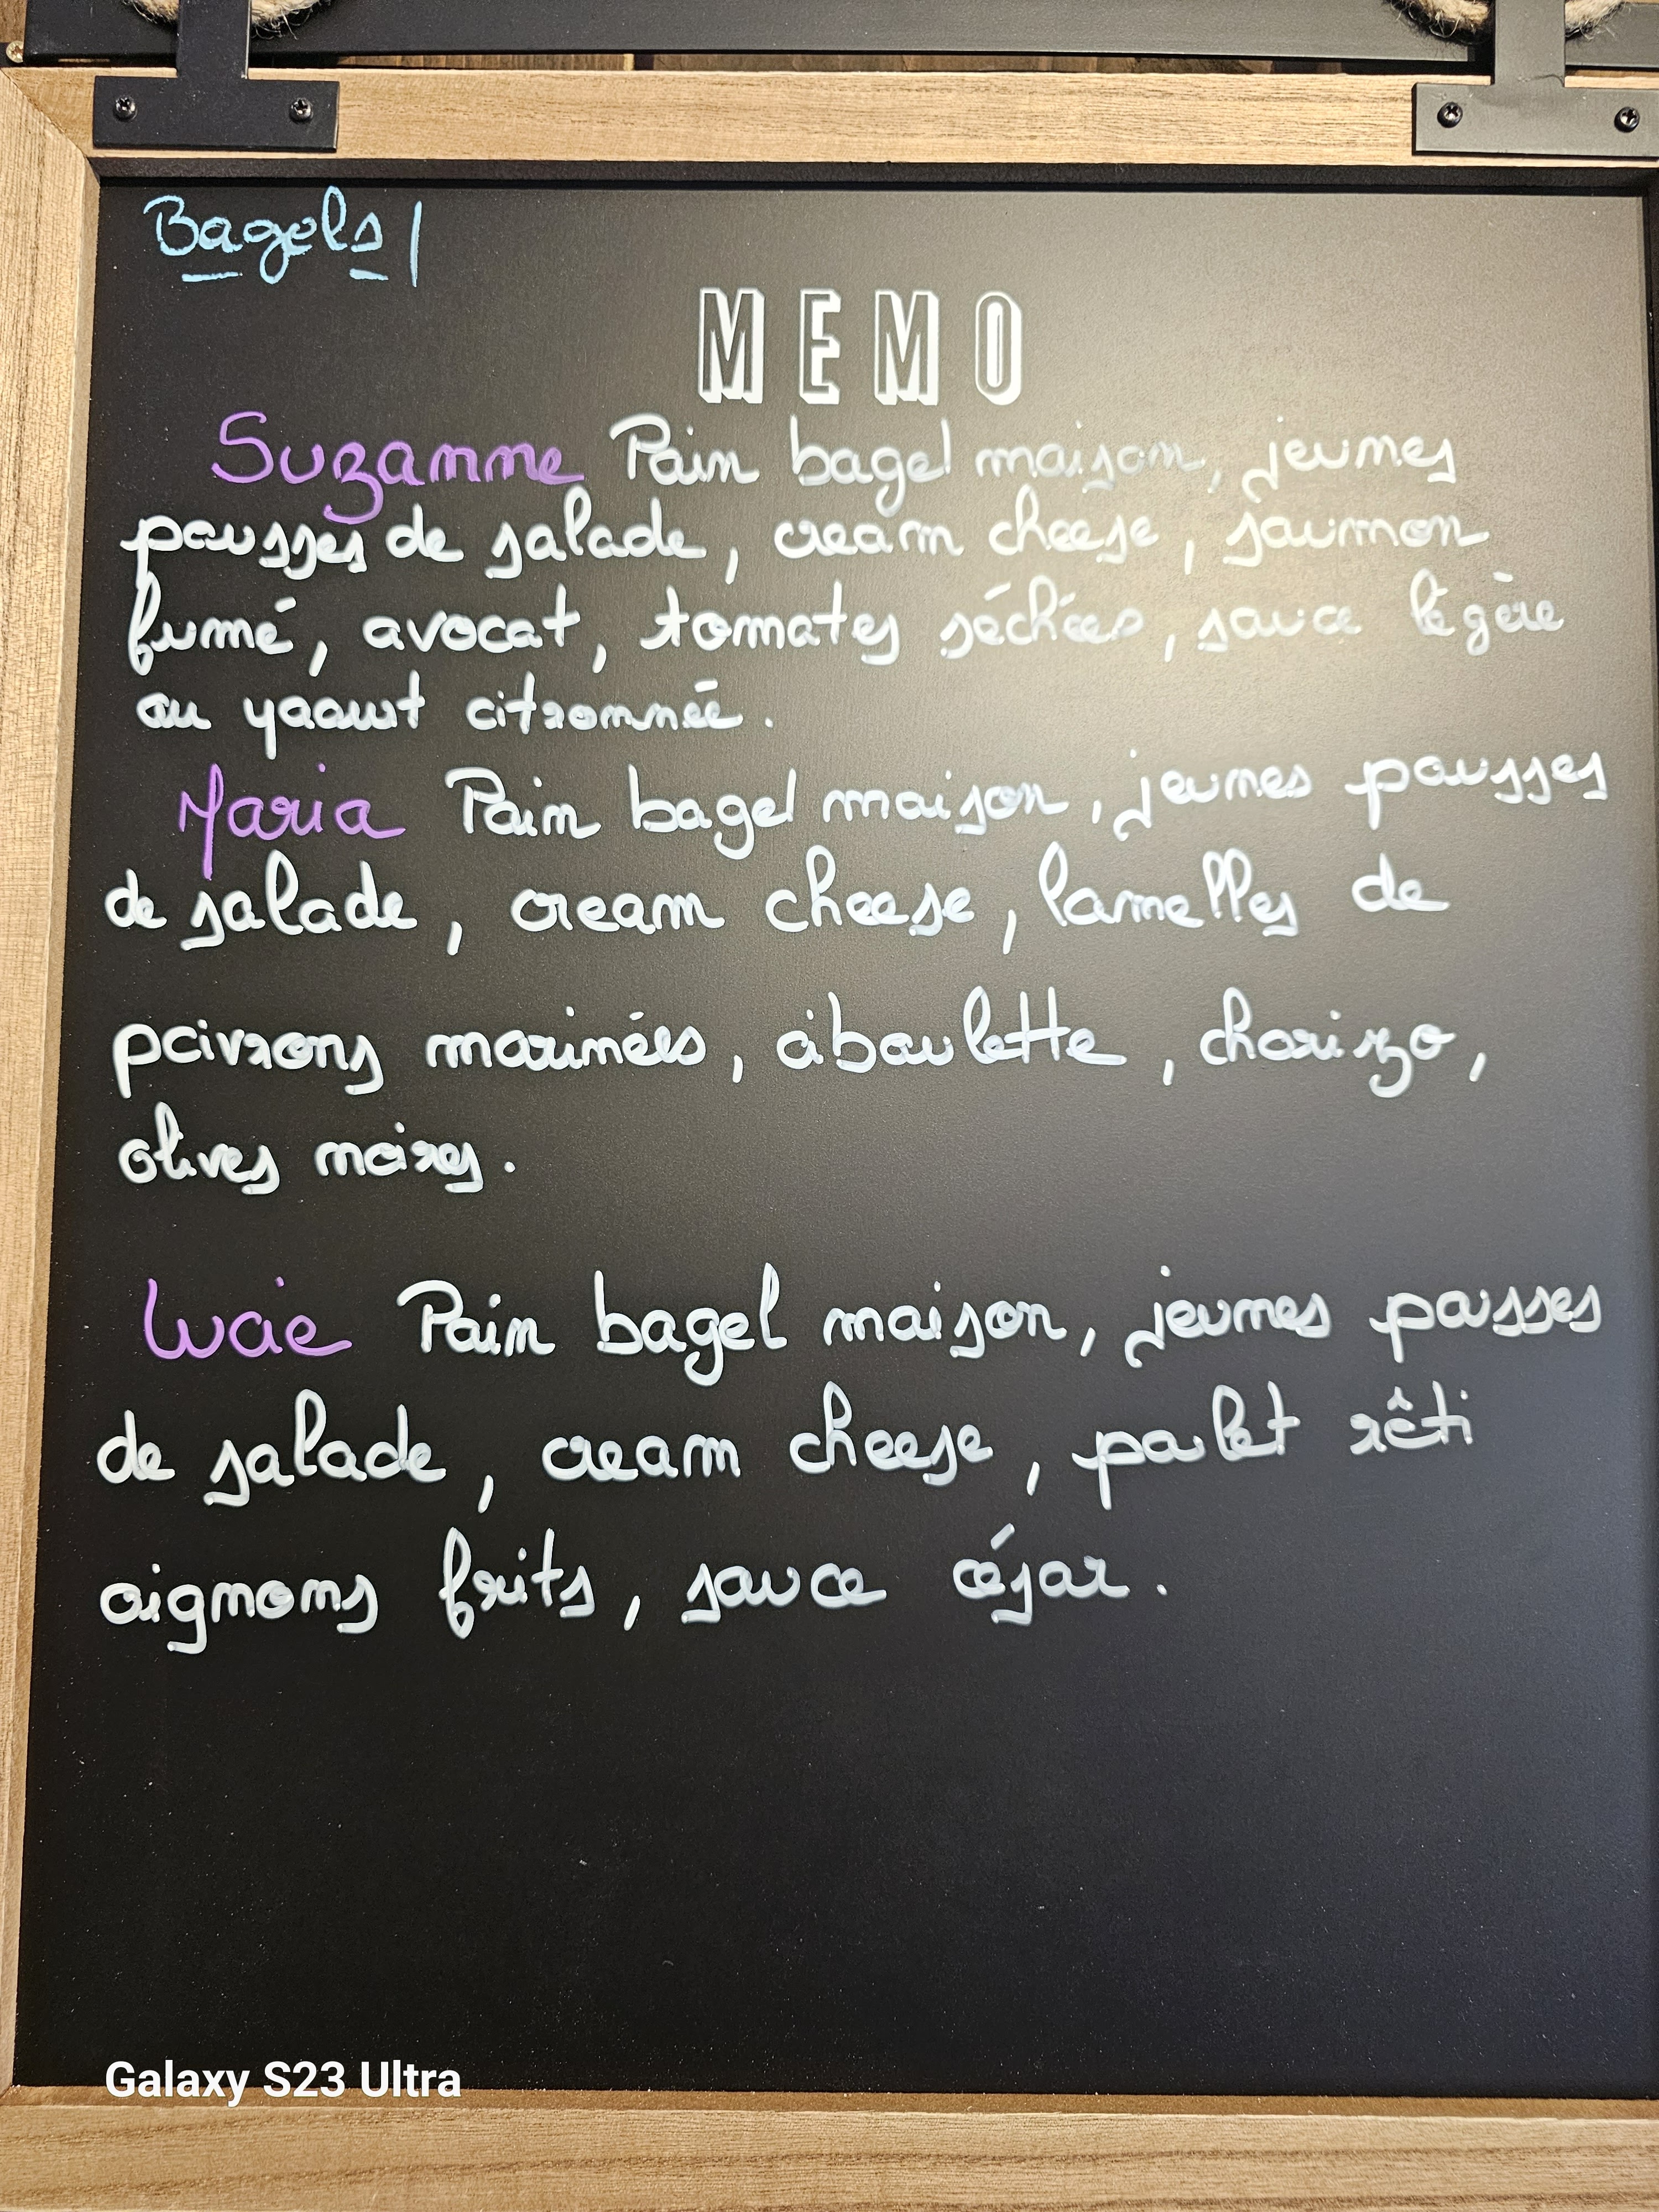 Bagels
MEMO
Suzanne Pain bagel maison, jeunes
pousses de salade, cream cheese, saumon
fumé, avocat, tomates séchées, sauce légère
au yaourt citronnée.
Maria Pain bagel maison, jeunes pousses
de salade, cream cheese, lamelles de
poivrons marinées, ciboulette, chorizo,
olives noires.
Lucie Pain bagel maison, jeunes pousses
de salade, cream cheese, poulet rôti
oignons frits, sauce césar.
Galaxy S23 Ultra